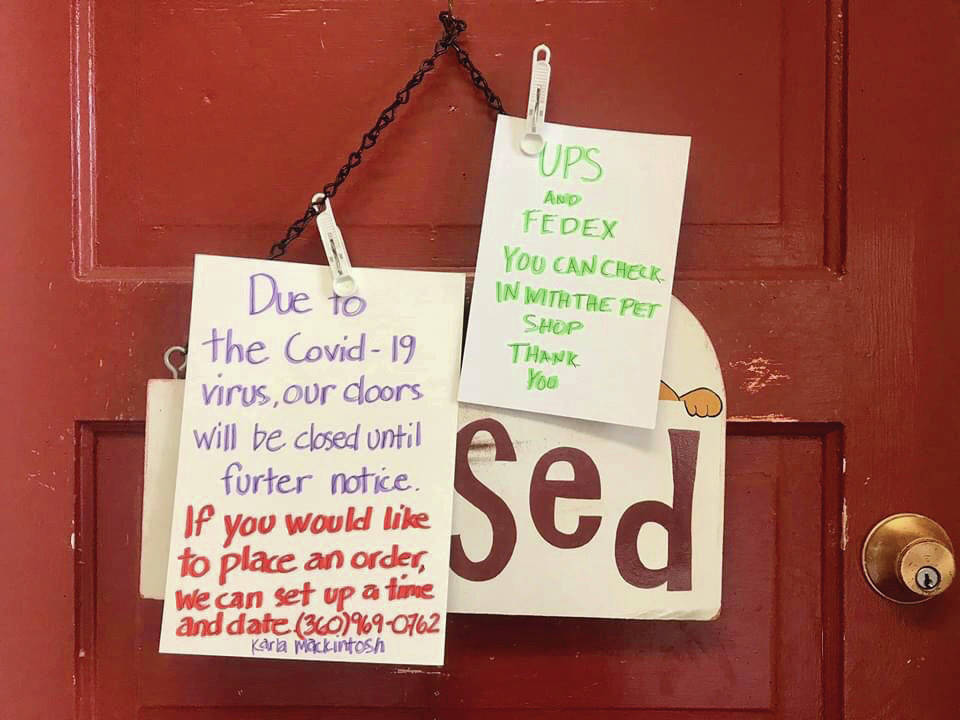 Due to
the Covid-19
virus, our doors
will be closed until
furter notice.
If you would like
to place an order,
we can set up a time
and date. (360) 969-0762
Karla Mackintosh
UPS
AND
FEDEX
YOU CAN CHECK
IN WITH THE PET
SHOP
THANK
YOU
sed